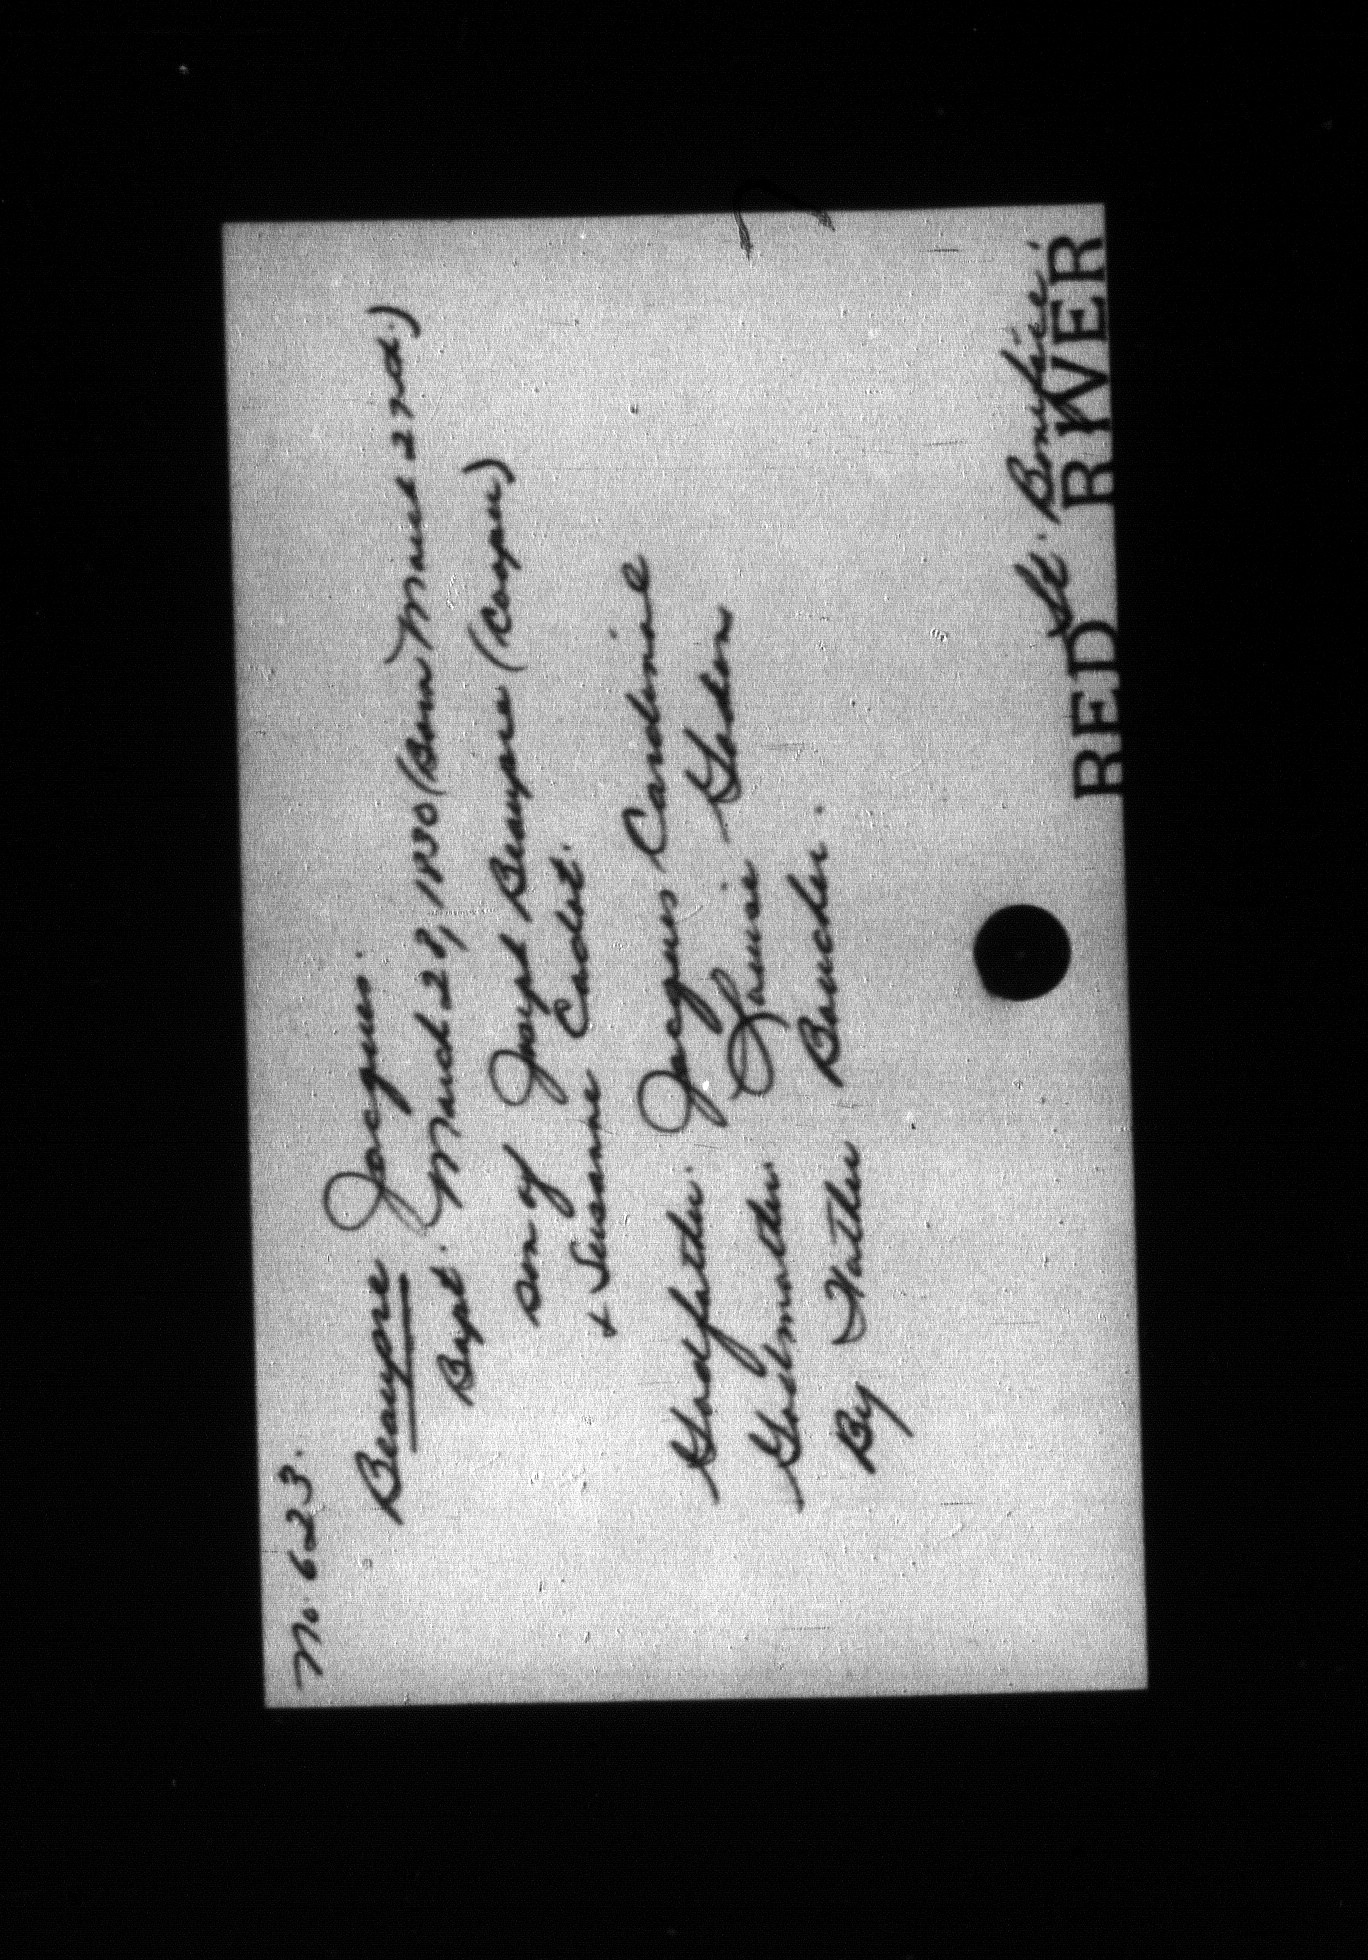 No. 623.
Beaupre Jacques.
Bapt. March 28, 1830 (Born March 2nd.)
son of Joseph Beaupre (Cooper)
& Susanne Cadot.
Godfather. Jacques Cardinal
Godmother. Louise
By Father Boucher.
St. Boniface.
RED RIVER